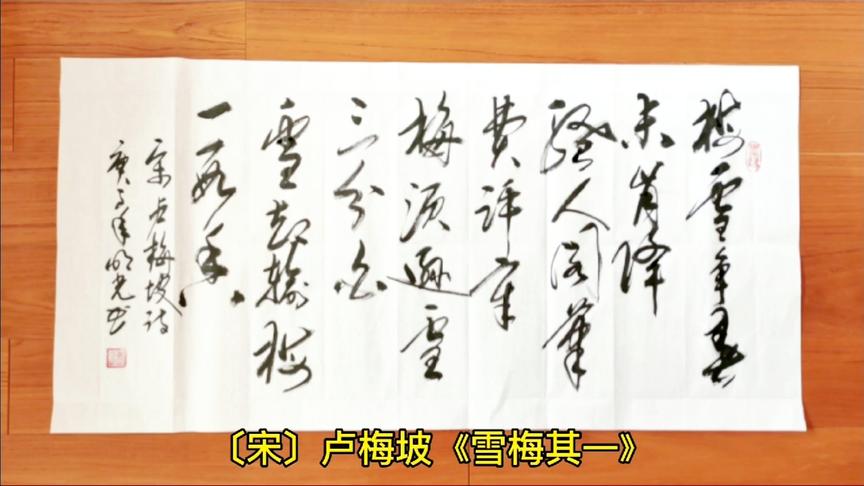 梅雪争春
未肯降
騷人阁筆
費評章
梅须遜雪
三分白
雪却輸梅
一段香
宋卢梅坡诗
庚子年明光书
〔宋〕卢梅坡《雪梅其一》